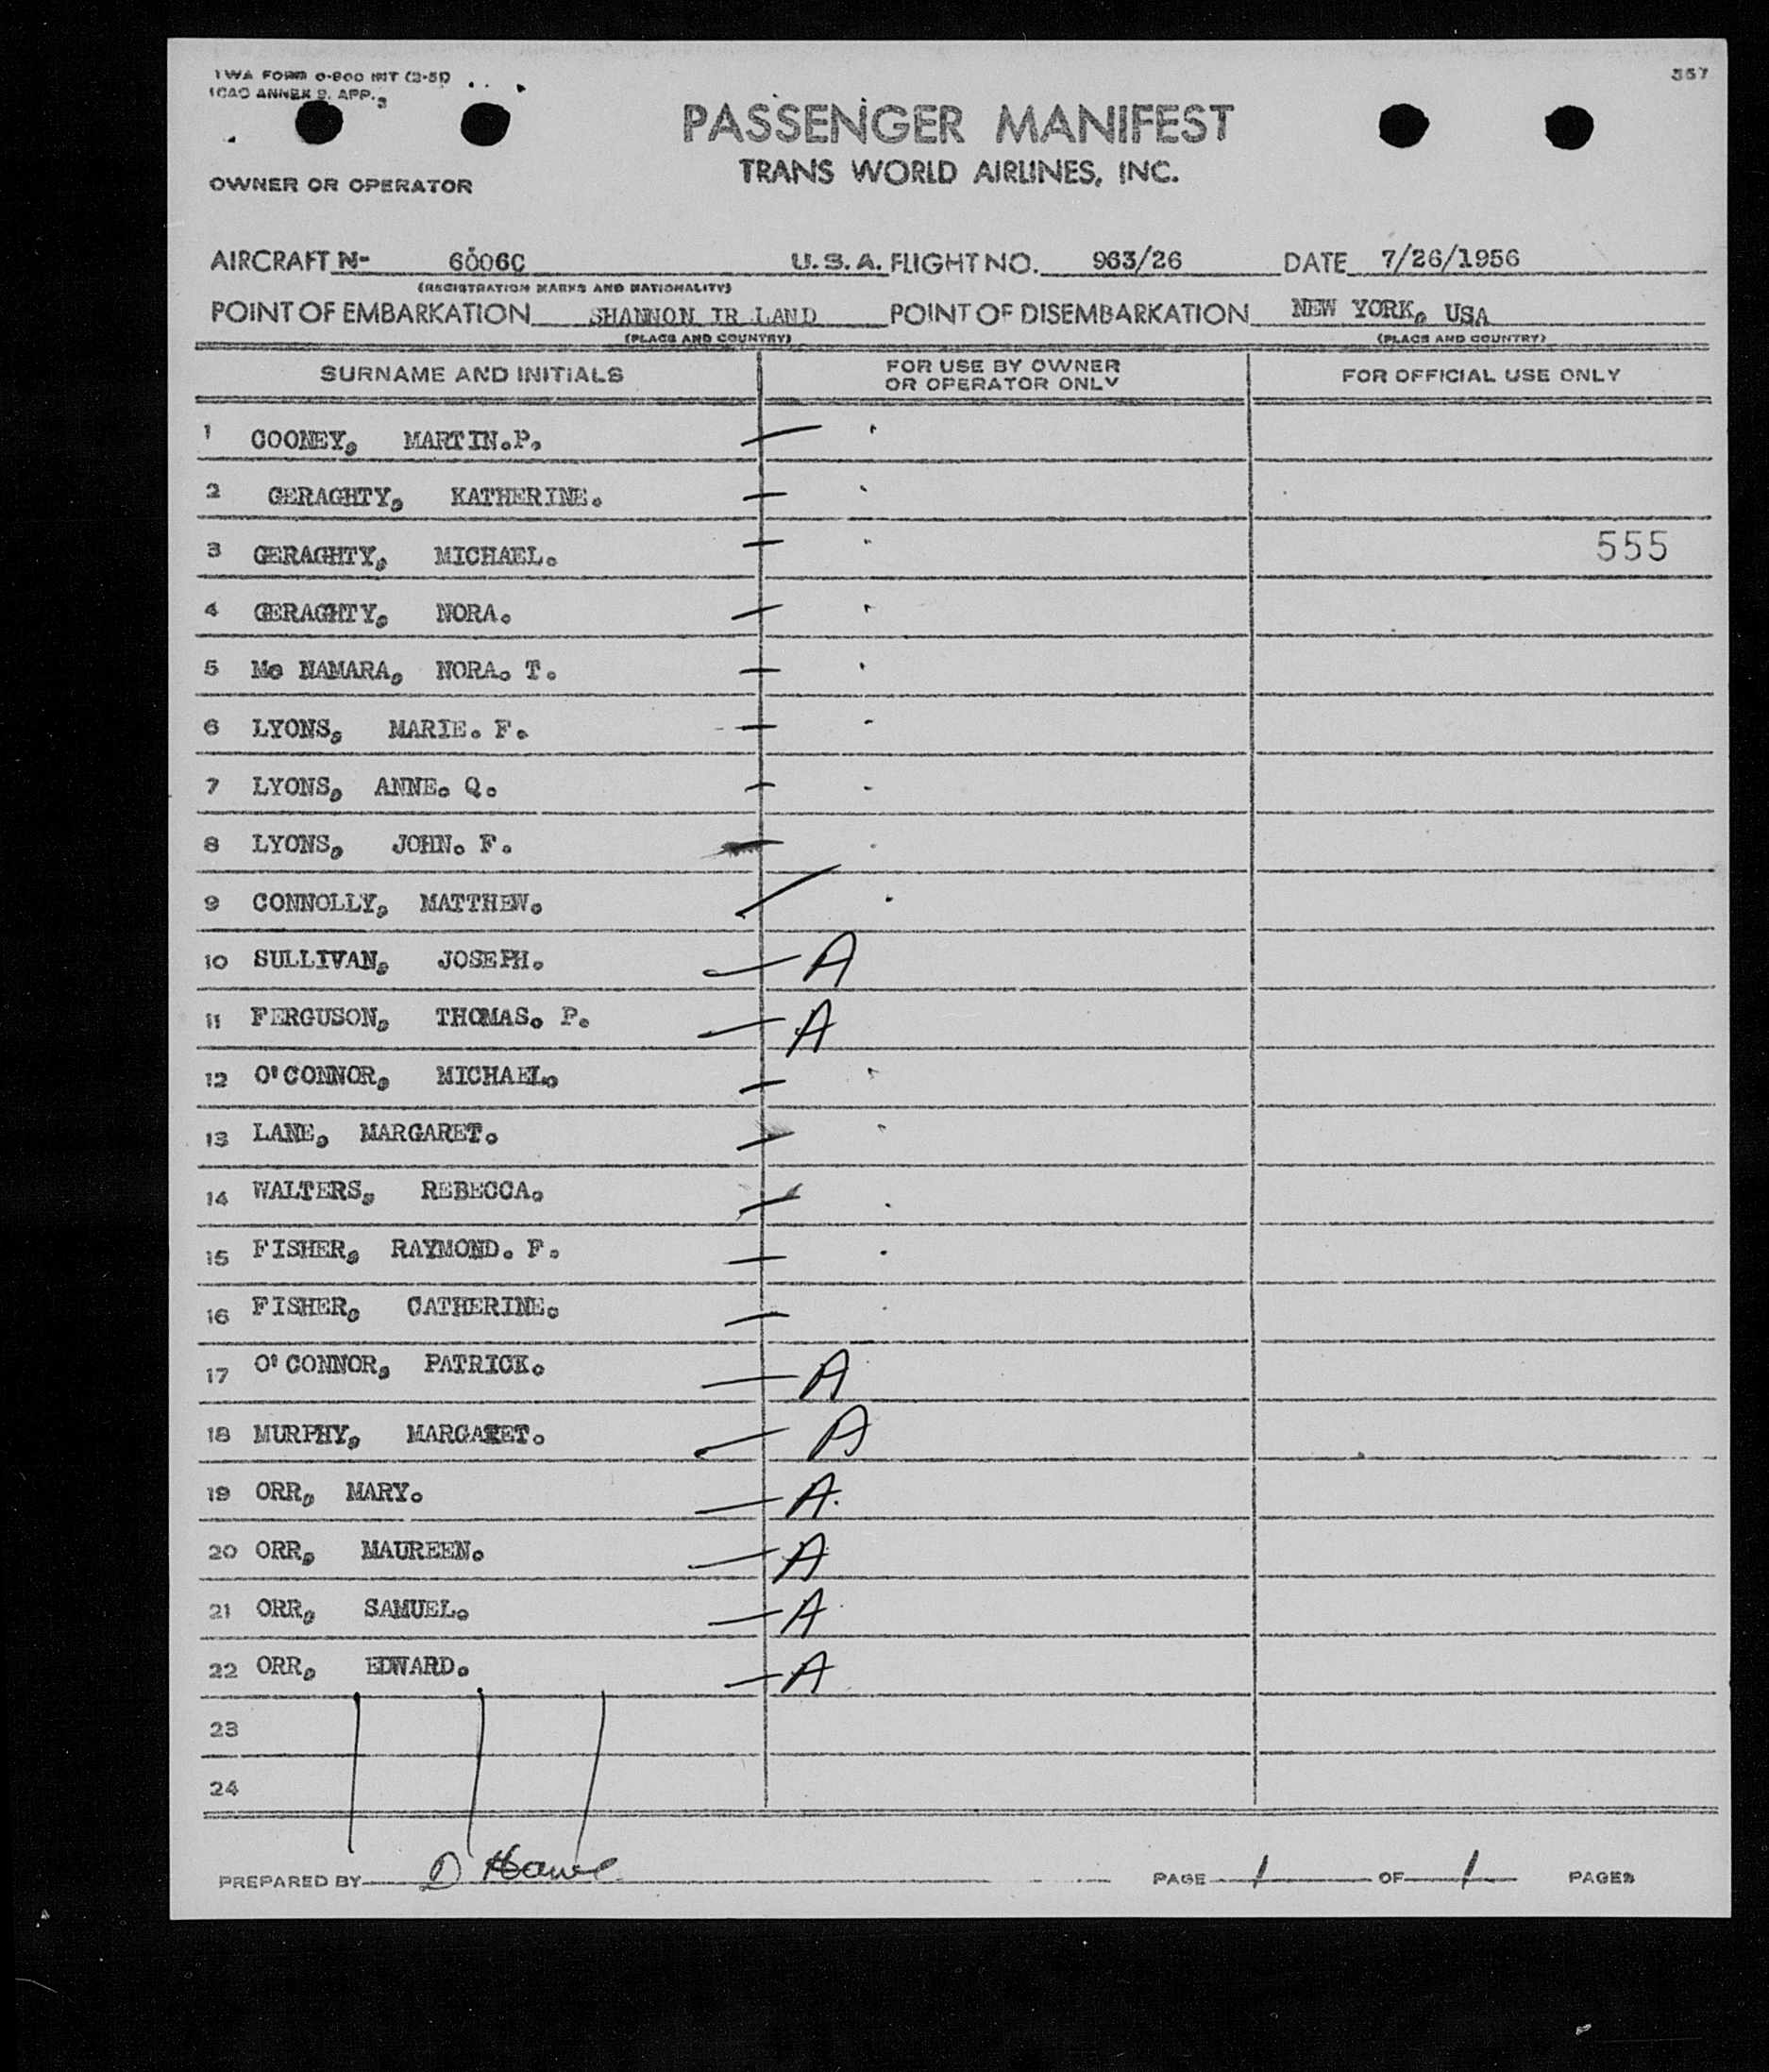 TWA FORM O-800 INT (2-51)
ICAO ANNEX 9, APP. 3
357
PASSENGER MANIFEST
TRANS WORLD AIRLINES, INC.
OWNER OR OPERATOR
AIRCRAFT N- 6006C U.S.A. FLIGHT NO. 963/26 DATE 7/26/1956
(REGISTRATION MARKS AND NATIONALITY)
POINT OF EMBARKATION SHANNON IR LAND POINT OF DISEMBARKATION NEW YORK, USA
(PLACE AND COUNTRY) (PLACE AND COUNTRY)
SURNAME AND INITIALS FOR USE BY OWNER OR OPERATOR ONLY FOR OFFICIAL USE ONLY
1 COONEY, MARTIN.P.
2 GERAGHTY, KATHERINE.
3 GERAGHTY, MICHAEL. 555
4 GERAGHTY, NORA.
5 Mc NAMARA, NORA. T.
6 LYONS, MARIE. F.
7 LYONS, ANNE. Q.
8 LYONS, JOHN. F.
9 CONNOLLY, MATTHEW.
10 SULLIVAN, JOSEPH. A
11 FERGUSON, THOMAS. P. A
12 O'CONNOR, MICHAEL.
13 LANE, MARGARET.
14 WALTERS, REBECCA.
15 FISHER, RAYMOND. F.
16 FISHER, CATHERINE.
17 O'CONNOR, PATRICK. A
18 MURPHY, MARGARET. A
19 ORR, MARY. A.
20 ORR, MAUREEN. A
21 ORR, SAMUEL. A
22 ORR, EDWARD. A
23
24
PREPARED BY D PAGE 1 OF 1 PAGES